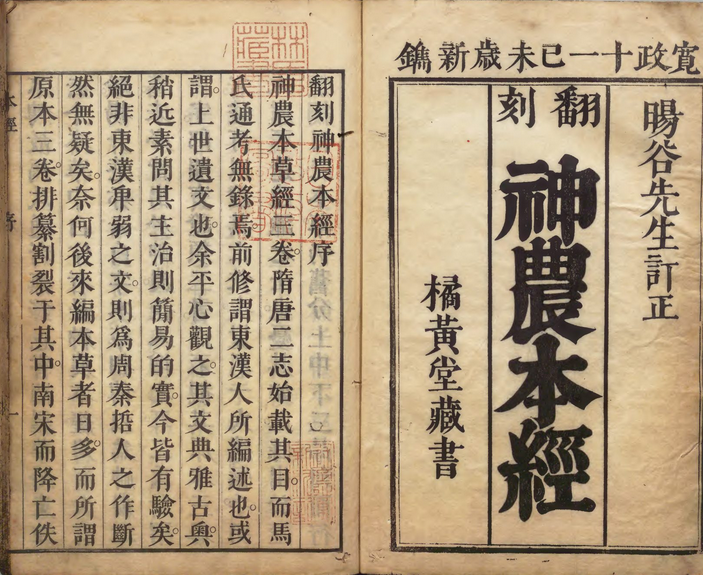 寛政十一己未歳新鐫
暘谷先生訂正
翻刻
神農本經
橘黃堂藏書
翻刻神農本經序
神農本草經三卷。隋唐二志始載其目。而馬
氏通考無錄焉前修謂東漢人所編述也。或
謂。上世遺文也。余平心觀之。其文典雅古奧。
稍近素問其主治則簡易的實。今皆有驗矣。
絕非東漢卑弱之文。則爲周秦哲人之作斷
然無疑矣。奈何後來編本草者日多。而所謂
原本三卷。排纂割裂于其中。南宋而降亡佚
本經
序
一